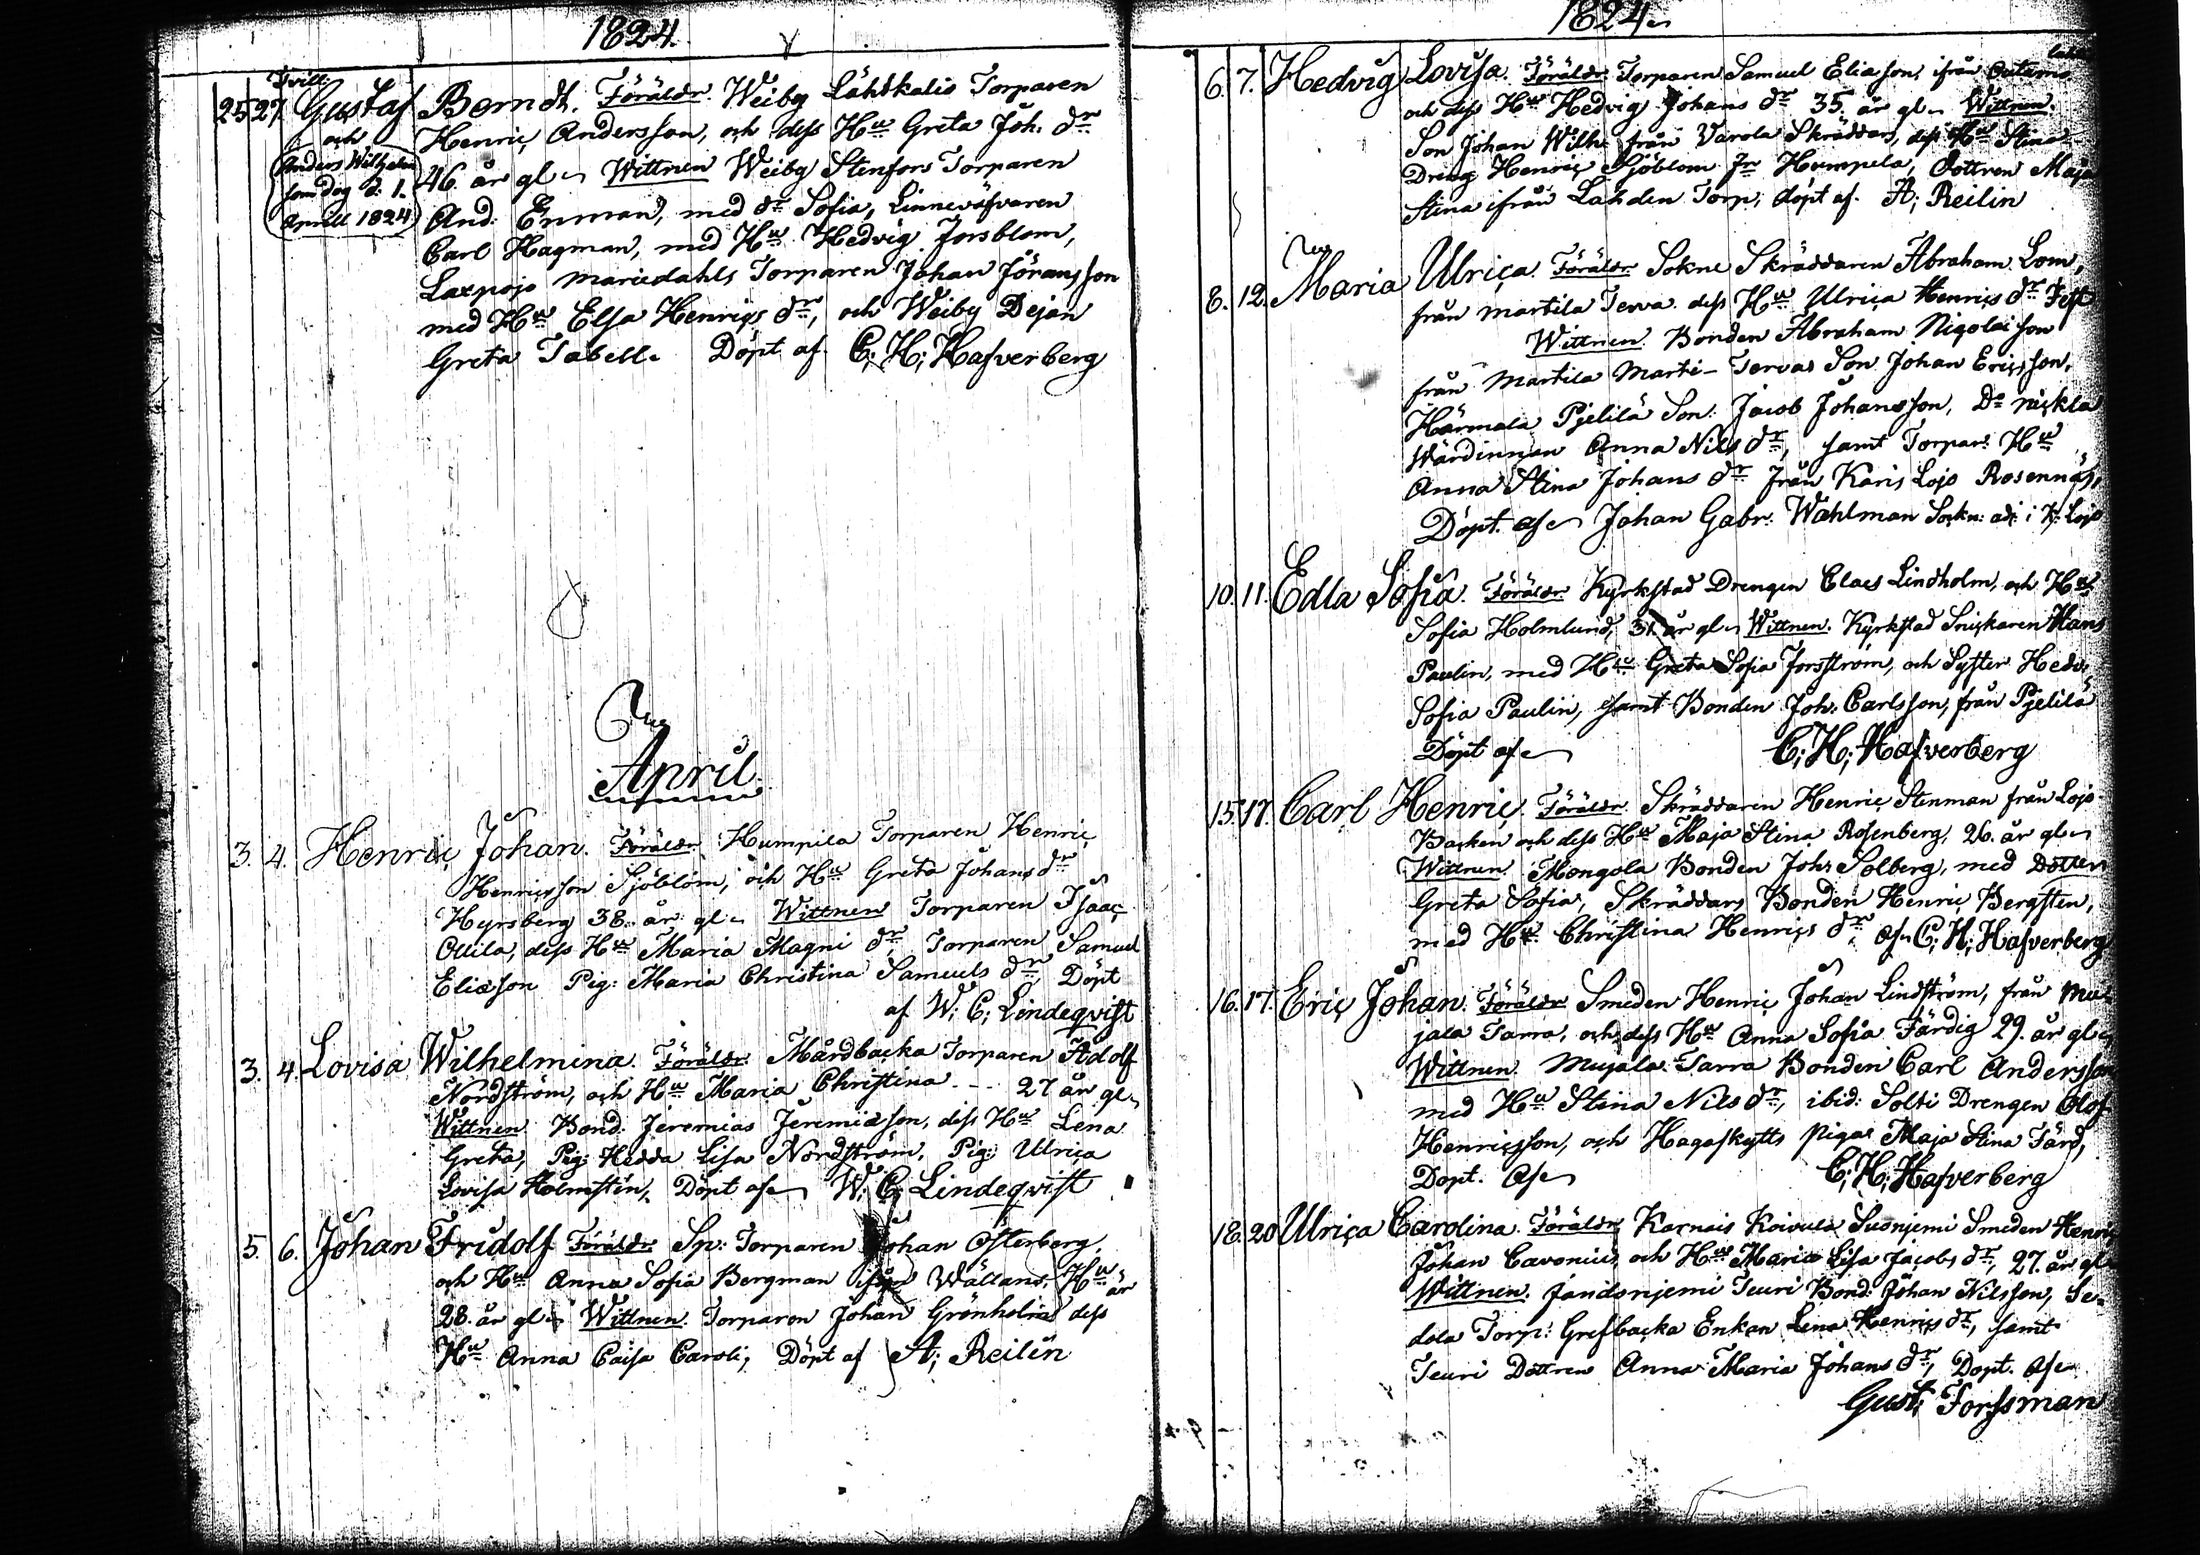 1824.
25 27 Tvill: Gustaf Berndt. Föräldr. Weiby Lähtkalio Torparen
och
Anders Wilhelm
som dog d. 1.
Aprill 1824
Henriç Andersson, och dess Hu Greta Joh. dr
46 år gl. Wittnen Weiby Stenfors Torparen
And: Enman, med dr Sofia, Linneväfvaren
Carl Hagman, med Hu Hedvig Forsblom,
Laxpojo Mariedahls Torparen Johan Göransson
med Hu Elsa Henriçs dr, och Weiby Dejan
Greta Tabell. Döpt af C; H; Hafverberg
April.
3. 4. Henriç Johan. Föräldr Humpila Torparen Henriç
Henriçsson Sjöblom, och Hu Greta Johans dr
Hyrsberg 38 år gl. Wittnen Torparen Isaaç
Ollila, dess Hu Maria Magni dr Torparen Samuel
Eliæson Pig: Maria Christina Samuels dr, Döpt
af W; C; Lindeqvist
3. 4. Lovisa Wilhelmina. Föräldr Mårdbaçka Torparen Adolf
Nordström, och Hu Maria Christina - - 27 år gl.
Wittnen Bond. Jeremias Jeremiæson, dess Hu Lena
Greta, Pig: Hedda Lisa Nordström, Pig: Ulriça
Lovisa Holmstén, Döpt af W; C; Lindeqvist
5. 6. Johan Fridolf Föräldr Sp: Torparen Johan Österberg
och Hu Anna Sofia Bergman ifrån Wällans, Hu är
28. år gl. Wittnen. Torparen Johan Grönholm dess
Hu Anna Caisa Caroli, Döpt af A; Reilin
1824
6. 7. Hedvig Lovisa. Föräldr Torparen Samuel Eliason, ifrån Outamo
och dess Hu Hedvig Johans dr 35 år gl. Wittnen.
Son Johan Wilh: från Varola Skräddars, dess Hu Stina
Dreng Henriç Sjöblom fr Humpila, Dottren Maja
Stina ifrån Lahden Torp, döpt af. A; Reilin
8. 12. Maria Ulriça. Föräldr Sokne Skräddaren Abraham Lom,
från Martila Terva dess Hu Ulriça Henriçs dr
Wittnen Bonden Abraham Nigolai son
från Martila Marti- Tervas Son Johan Ericsson,
Härmala Pjelilä Son: Jacob Johansson, Do niçkla
Wärdinnan Anna Nils dr, samt Torpar: Hu
Anna Stina Johans dr från Karis Lojo Rosennäs,
Döpt. af Johan Gabr. Wahlman Sokn: adj: i K: Lojo
10. 11. Edla Sofia. Föräldr Kyrkstad Drengen Claes Lindholm, och Hu
Sofia Holmlund, 31 år gl. Wittnen. Kyrkstad Sniçkaren Hans
Paulin, med Hu Greta Sofia Forsström, och Syster Hedv:
Sofia Paulin, samt Bonden Joh: Carlsson, från Pjelilä
Döpt af C; H; Hafverberg
15. 17. Carl Henriç. Föräldr Skräddaren Henriç Stenman från Lojo
Baçken och dess Hu Maja Stina Rosenberg, 26. år gl.
Wittnen. Mongola Bonden Joh: Solberg, med Dotter
Greta Sofia, Skräddars Bonden Henriç Bergsten,
med Hu Christina Henriçs dr. af C; H; Hafverberg
16. 17. Eriç Johan. Föräldr Smeden Henriç Johan Lindström, från Mu-
jala Tarra, och dess Hu Anna Sofia Färdig 29. år gl.
Wittnen Mujala Tarra Bonden Carl Andersson
med Hu Stina Nils dr, ibid: Solti Drengen Olof
Henriçsson, och Hagaskytts Pigas Maja Stina Färd,
Döpt. af C; H; Hafverberg
18. 20 Ulriça Carolina. Föräldr Karnais Koivula Susnjemi Smeden Henriç
Johan Cavonius, och Hu Maria Lisa Jacobs dr, 27. år gl
Wittnen. Jandsnjemi Teuri Bond: Johan Nilsson, Se-
dola Torp: Grefbaçka Enkan Lena Henriçs dr, samt
Teuri Dottren Anna Maria Johans dr, Döpt. af
Gust; Forssman